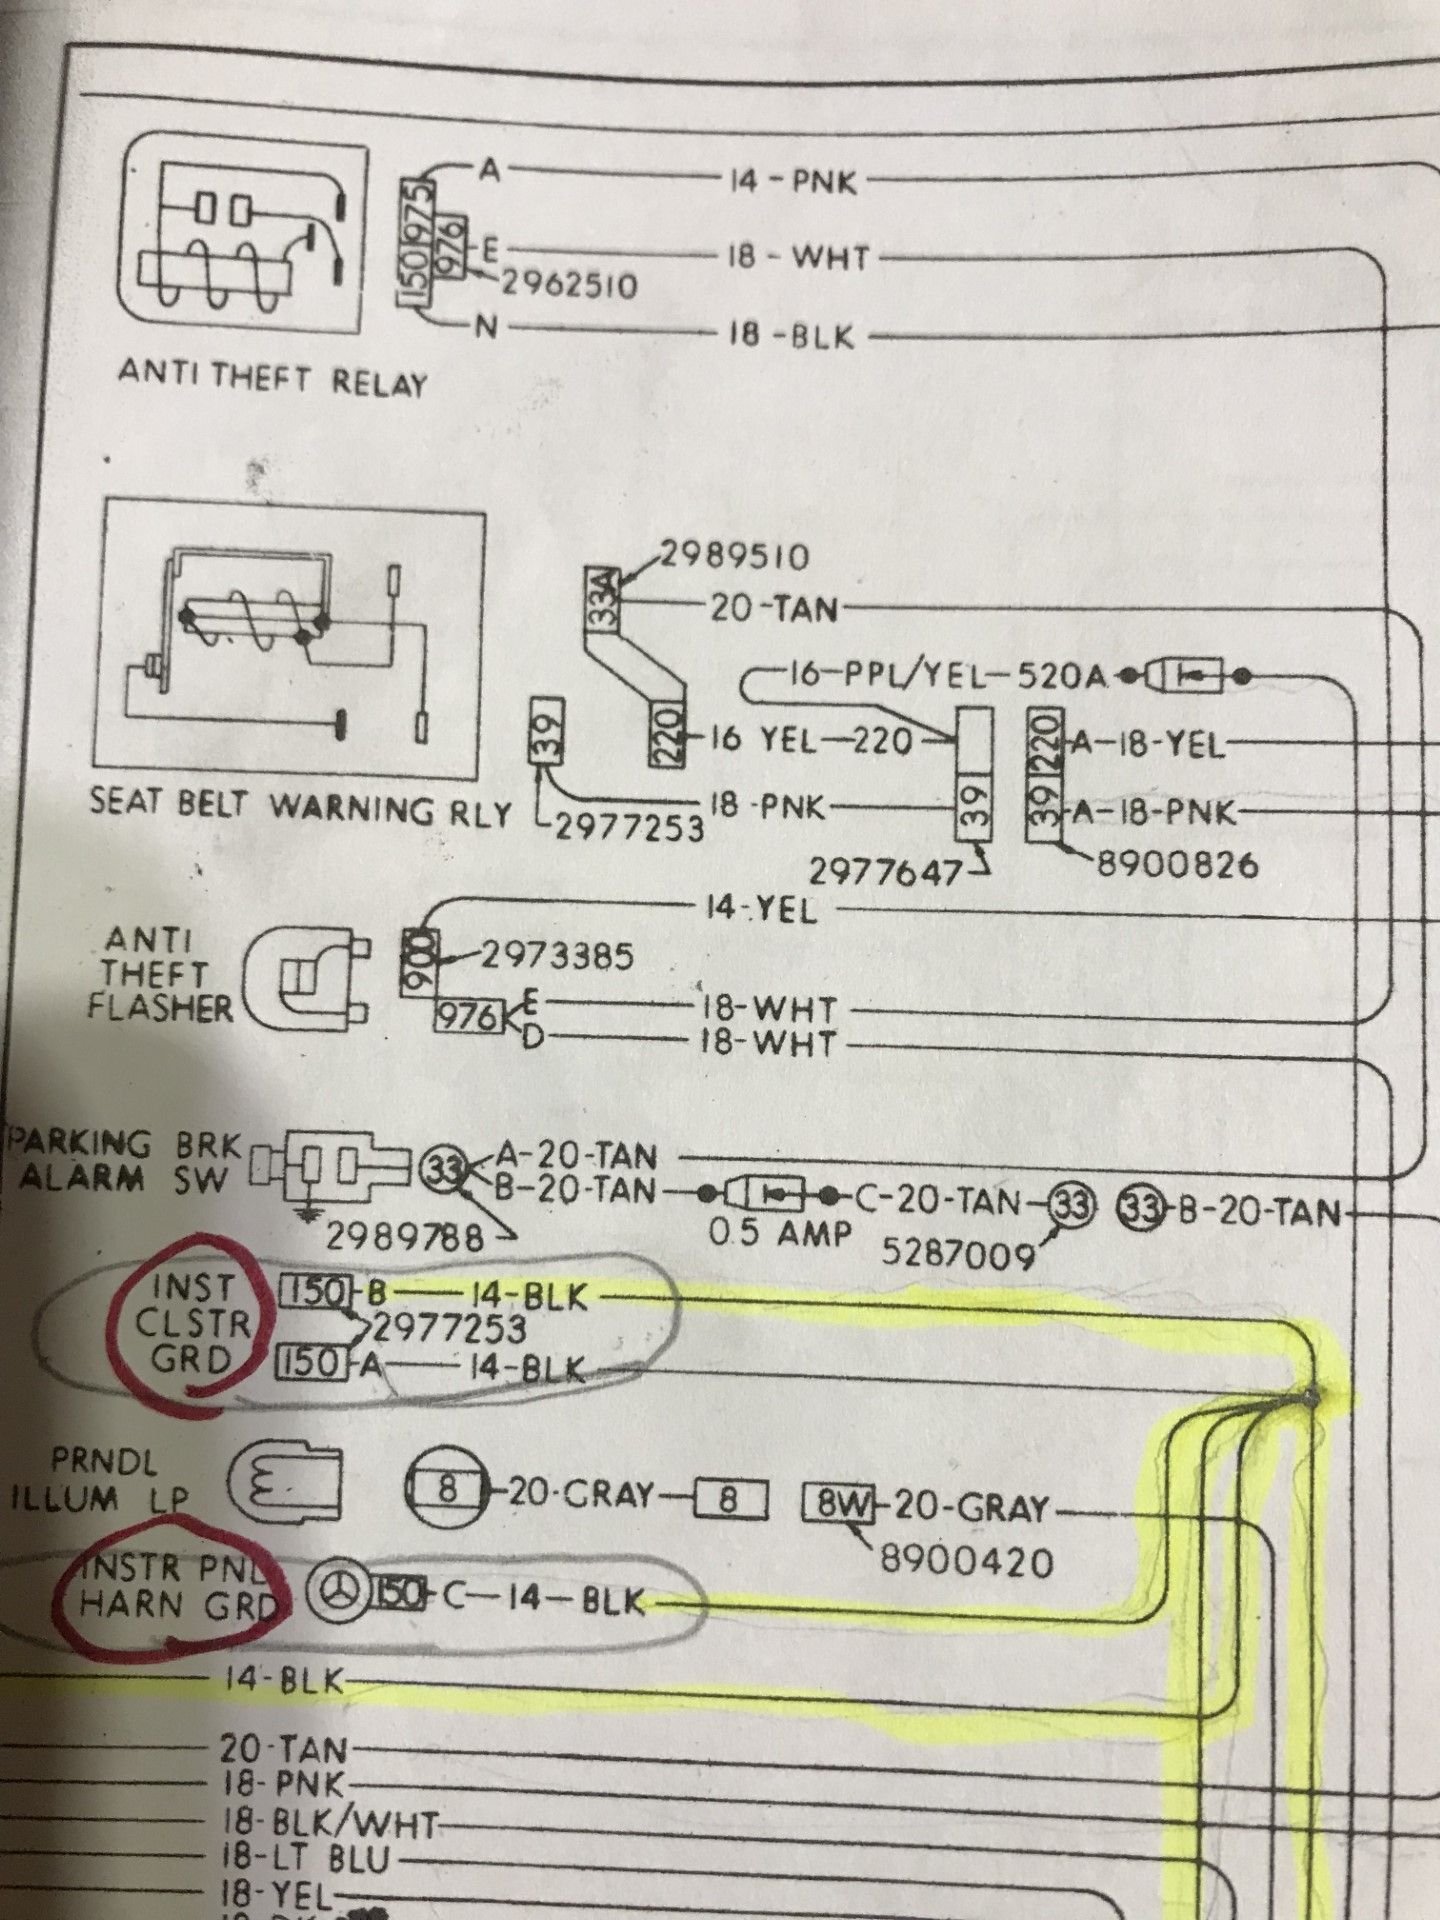 A 14-PNK
150 975 976
E 18-WHT
2962510
N 18-BLK
ANTI THEFT RELAY
2989510
33A 20-TAN
16-PPL/YEL-520A
39 220 16 YEL-220 39 220 39 A-18-YEL
18-PNK A-18-PNK
SEAT BELT WARNING RLY 2977253
2977647 8900826
14-YEL
ANTI THEFT FLASHER
900 2973385
976 E 18-WHT
D 18-WHT
PARKING BRK ALARM SW
33 A-20-TAN
B-20-TAN C-20-TAN 33 33 B-20-TAN
2989788 0.5 AMP 5287009
INST CLSTR GRD
150 B 14-BLK
2977253
150 A 14-BLK
PRNDL ILLUM LP
8 20-GRAY 8 8W 20-GRAY
8900420
INSTR PNL HARN GRD
150 C-14-BLK
14-BLK
20-TAN
18-PNK
18-BLK/WHT
18-LT BLU
18-YEL